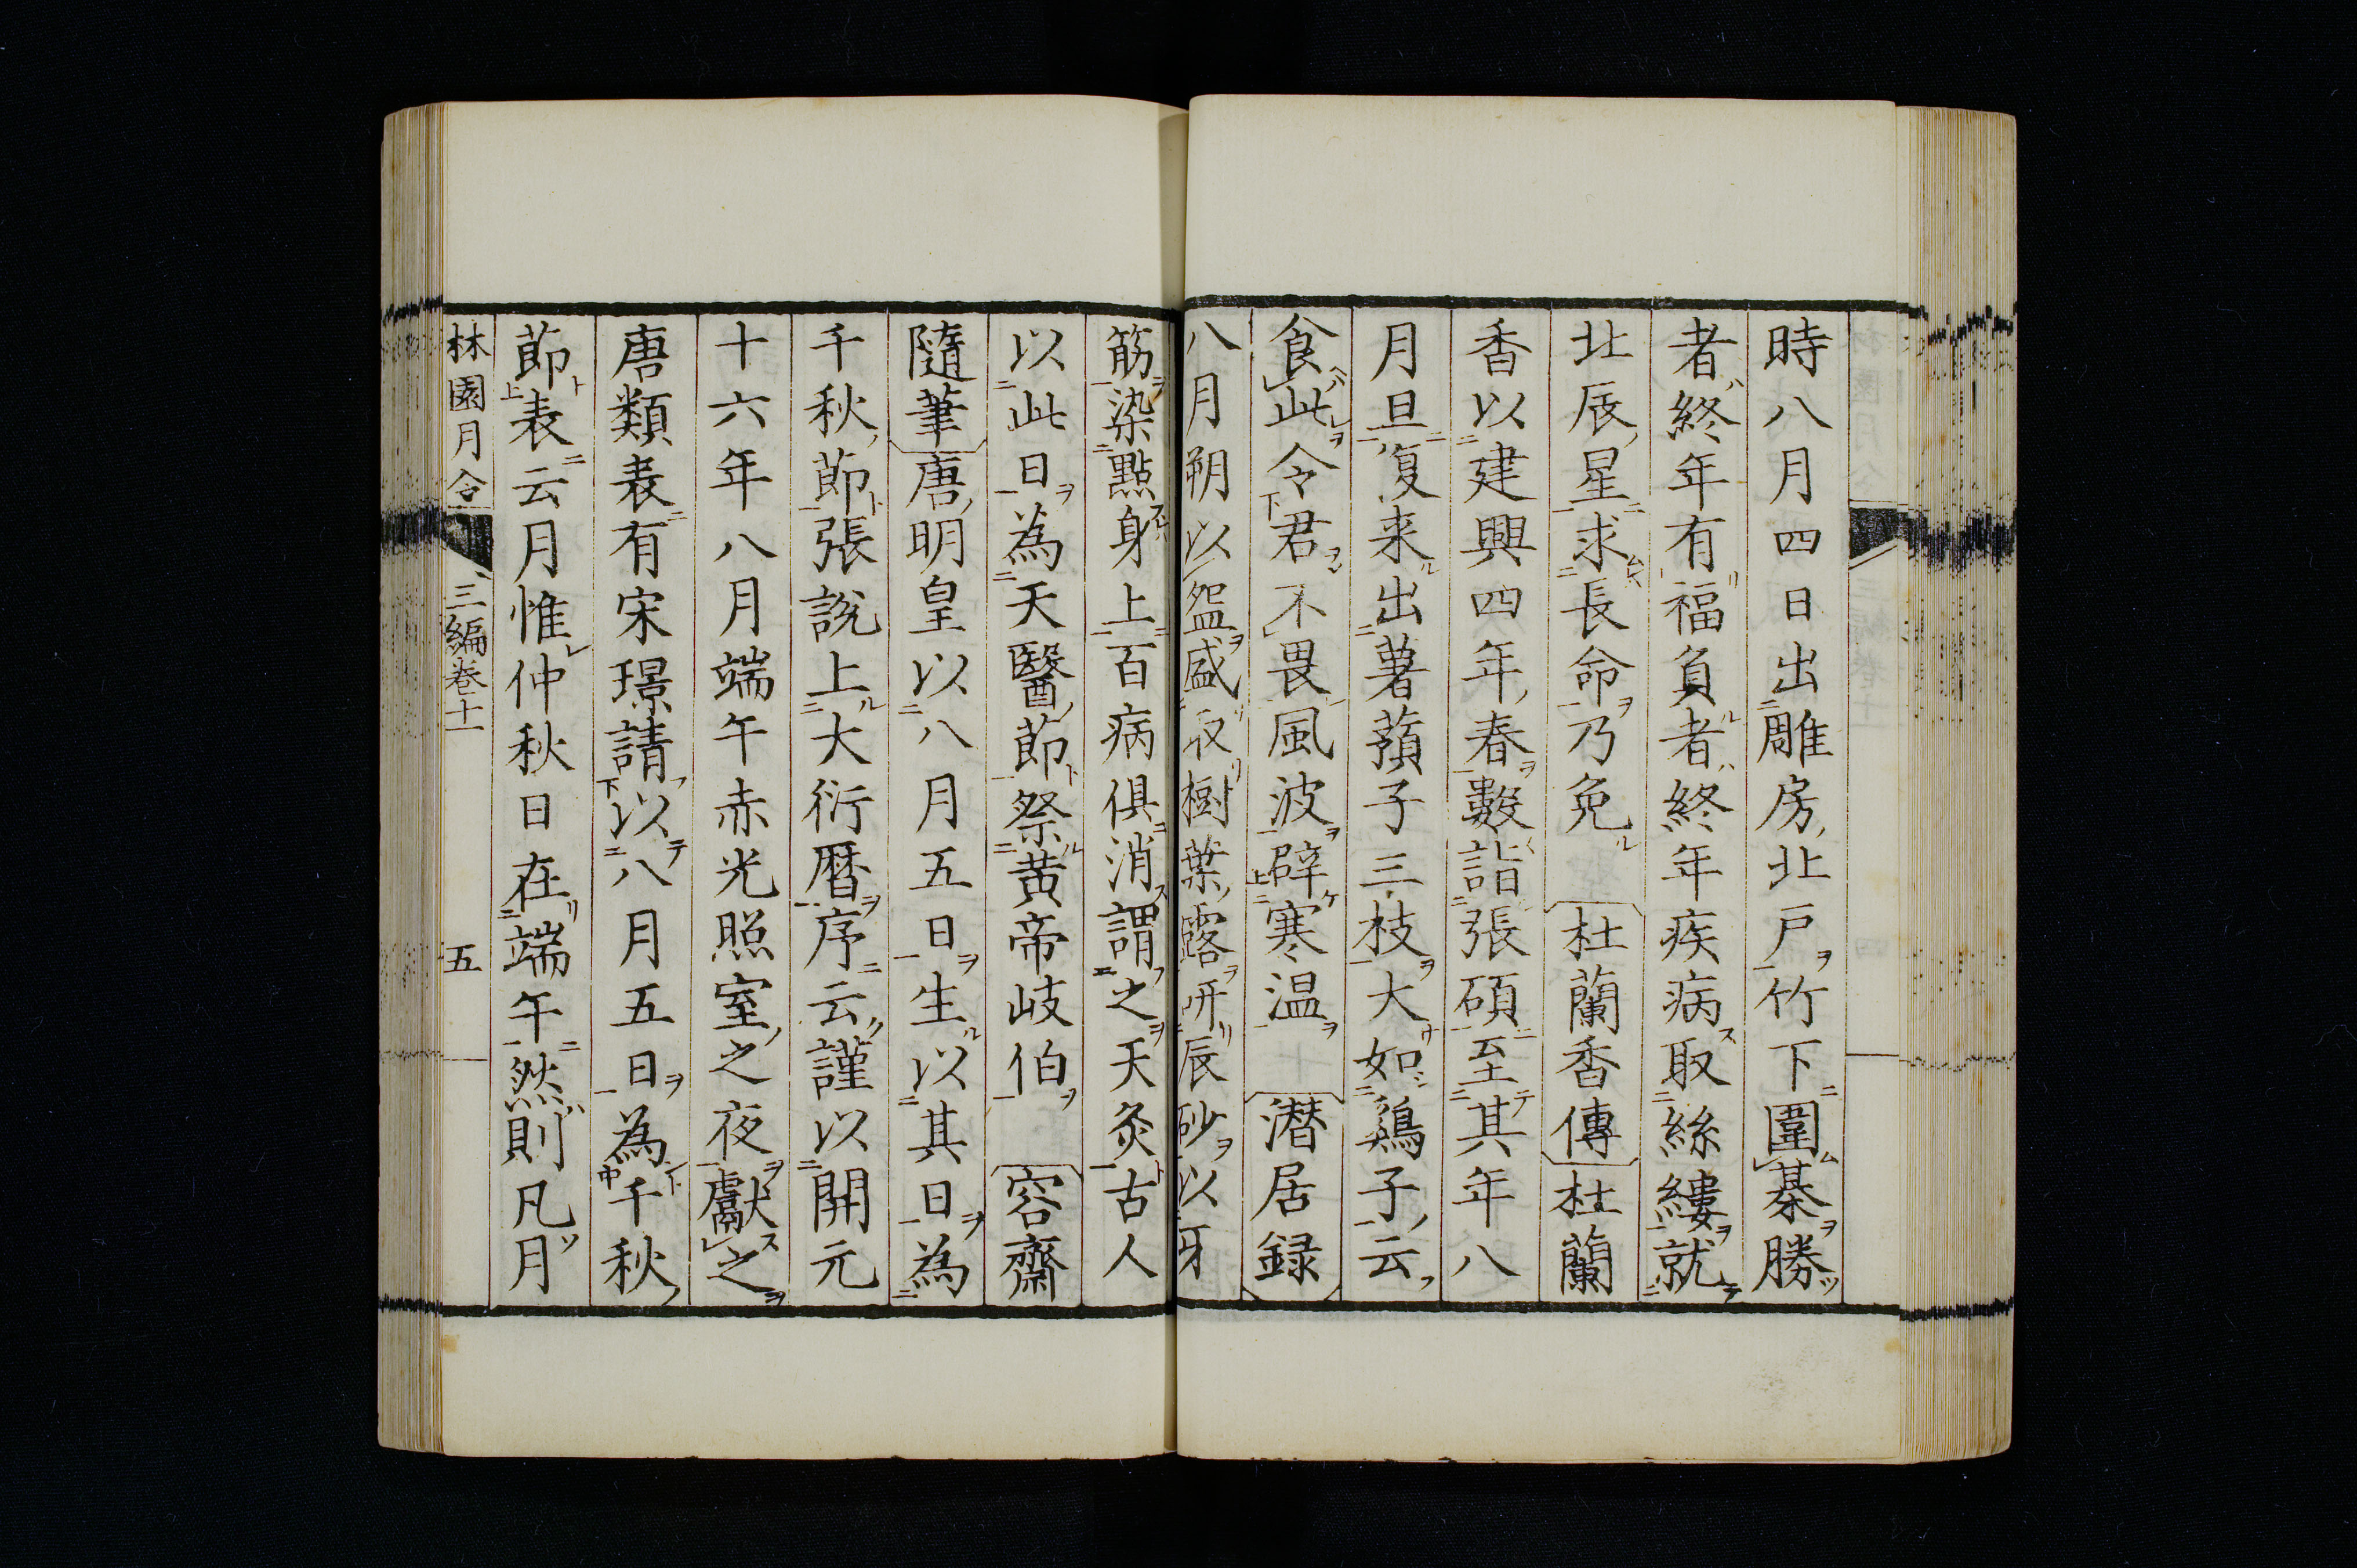 時八月四日出雕房北戸竹下圍棊勝
者終年有福負者終年疾病取絲縷就
北辰星求長命乃免　杜蘭香傳　杜蘭
香以建興四年春數詣張碩至其年八
月旦復来出薯蕷子三枝大如鷄子云
食此令君不畏風波辟寒温　潜居録
八月朔以盌盛取樹葉露研辰砂以牙
筯染點身上百病俱消謂之天灸古人
以此日為天醫節祭黄帝岐伯　容齋
隨筆　唐明皇以八月五日生以其日為
千秋節張說上大衍暦序云謹以開元
十六年八月端午赤光照室之夜獻之
唐類表有宋璟請以八月五日為千秋
節表云月惟仲秋日在端午然則凡月
林園月令　三編巻十一　五